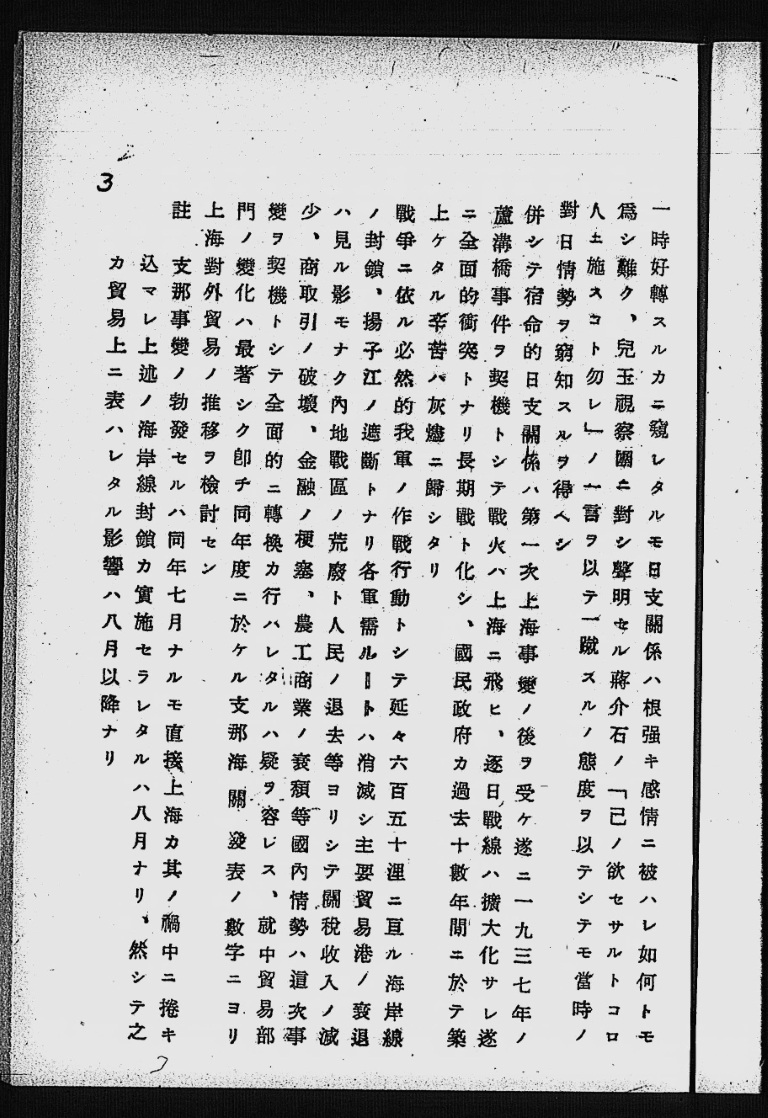 一時好轉スルカニ窺レタルモ日支關係ハ根强キ感情ニ被ハレ如何トモ
爲シ難ク、兒玉視察團ニ對シ聲明セル蔣介石ノ「己ノ欲セサルトコロ
人ニ施スコト勿レ」ノ一言ヲ以テ一蹴スルノ態度ヲ以テシテモ當時ノ
對日情勢ヲ窮知スルヲ得ヘシ
併シテ宿命的日支關係ハ第一次上海事變ノ後ヲ受ケ遂ニ一九三七年ノ
蘆溝橋事件ヲ契機トシテ戰火ハ上海ニ飛ヒ、逐日戰線ハ擴大化サレ遂
ニ全面的衝突トナリ長期戰ト化シ、國民政府カ過去十數年間ニ於テ築
上ケタル辛苦ハ灰燼ニ歸シタリ
戰爭ニ依ル必然的我軍ノ作戰行動トシテ延々六百五十浬ニ亘ル海岸線
ノ封鎖、揚子江ノ遮斷トナリ各軍需ルートハ消滅シ主要貿易港ノ衰退
ハ見ル影モナク內地戰區ノ荒廢ト人民ノ退去等ヨリシテ關稅收入ノ減
少、商取引ノ破壞、金融ノ梗塞、農工商業ノ衰頽等國內情勢ハ這次事
變ヲ契機トシテ全面的ニ轉換カ行ハレタルハ疑ヲ容レス、就中貿易部
門ノ變化ハ最著シク卽チ同年度ニ於ケル支那海關發表ノ數字ニヨリ
上海對外貿易ノ推移ヲ檢討セン
註　支那事變ノ勃發セルハ同年七月ナルモ直接上海カ其ノ禍中ニ捲キ
込マレ上述ノ海岸線封鎖カ實施セラレタルハ八月ナリ、然シテ之
カ貿易上ニ表ハレタル影響ハ八月以降ナリ
3